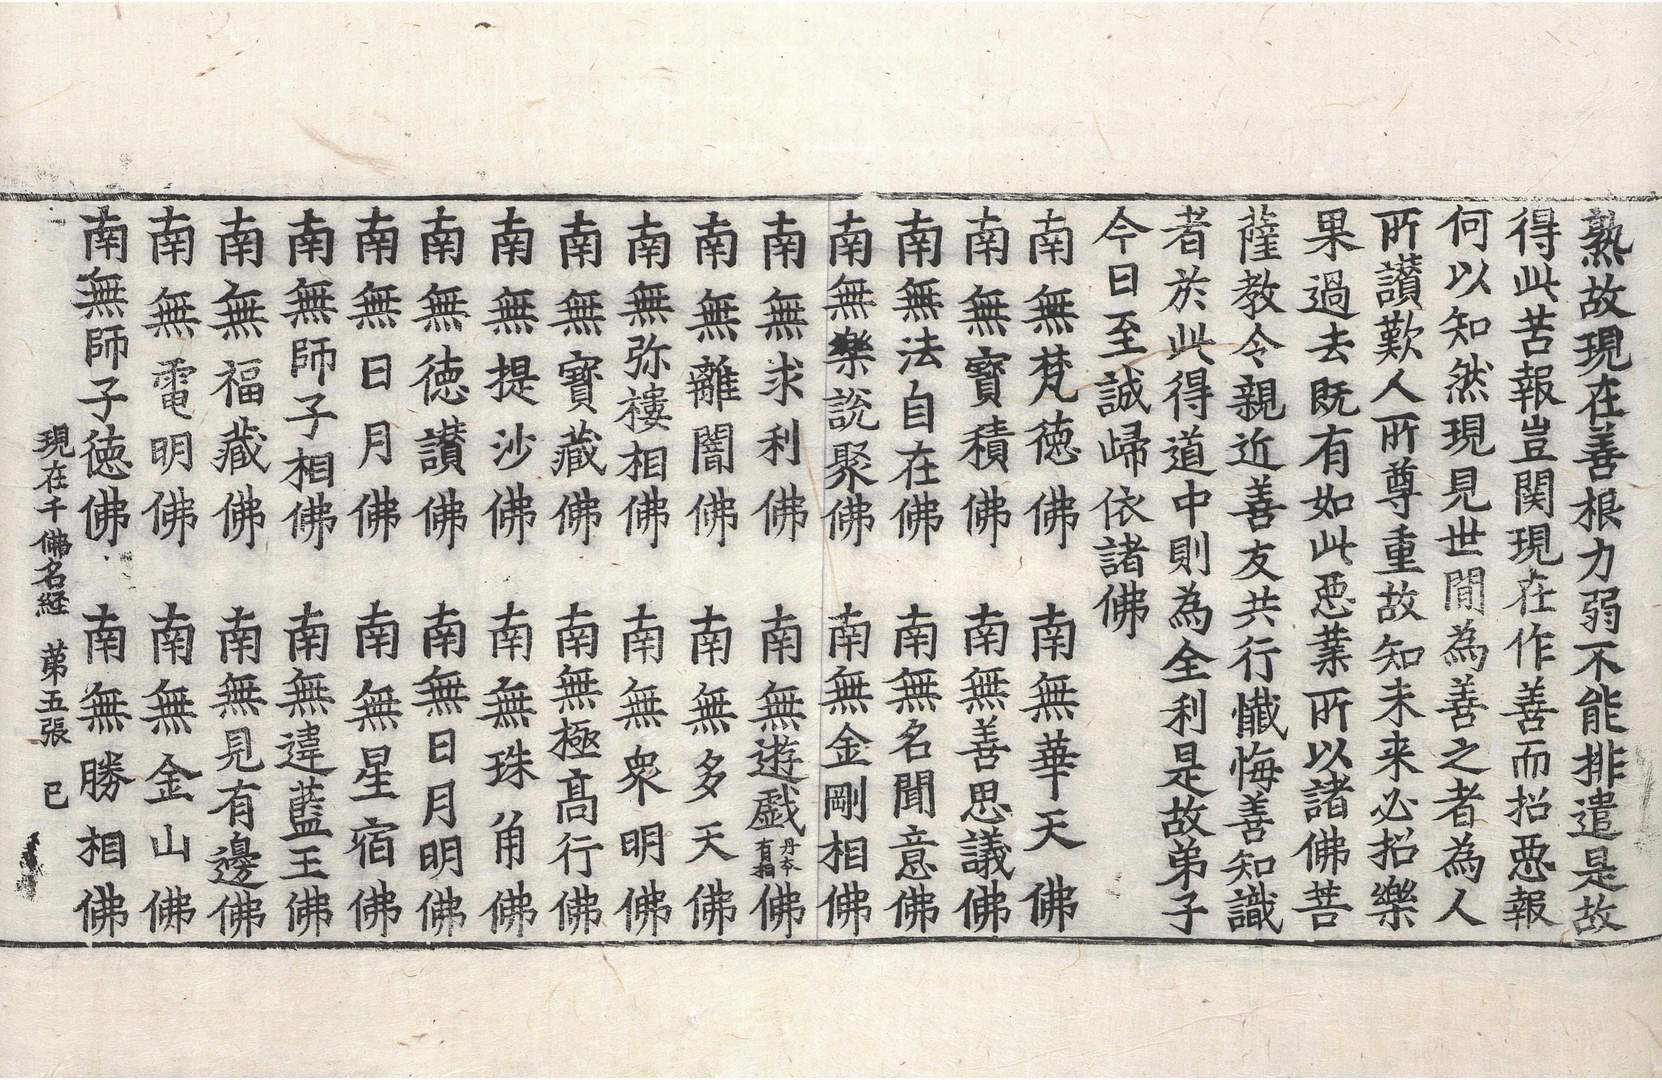 熟故現在善根力弱不能排遣是故
得此苦報豈関現在作善而招惡報
何以知然現見世間為善之者為人
所讃歎人所尊重故知未来必招樂
果過去既有如此惡業所以諸佛菩
薩教令親近善友共行懺悔善知識
者於此得道中則為全利是故弟子
今日至誠歸依諸佛
南無梵徳佛　南無華天佛
南無寶積佛　南無善思議佛
南無法自在佛　南無名聞意佛
南無樂說聚佛　南無金剛相佛
南無求利佛　南無遊戯丹本有相佛
南無離闇佛　南無多天佛
南無弥樓相佛　南無衆明佛
南無寶藏佛　南無極高行佛
南無提沙佛　南無珠角佛
南無徳讃佛　南無日月明佛
南無日月佛　南無星宿佛
南無師子相佛　南無違藍王佛
南無福藏佛　南無見有邊佛
南無電明佛　南無金山佛
南無師子徳佛　南無勝相佛
現在千佛名経　第五張　已